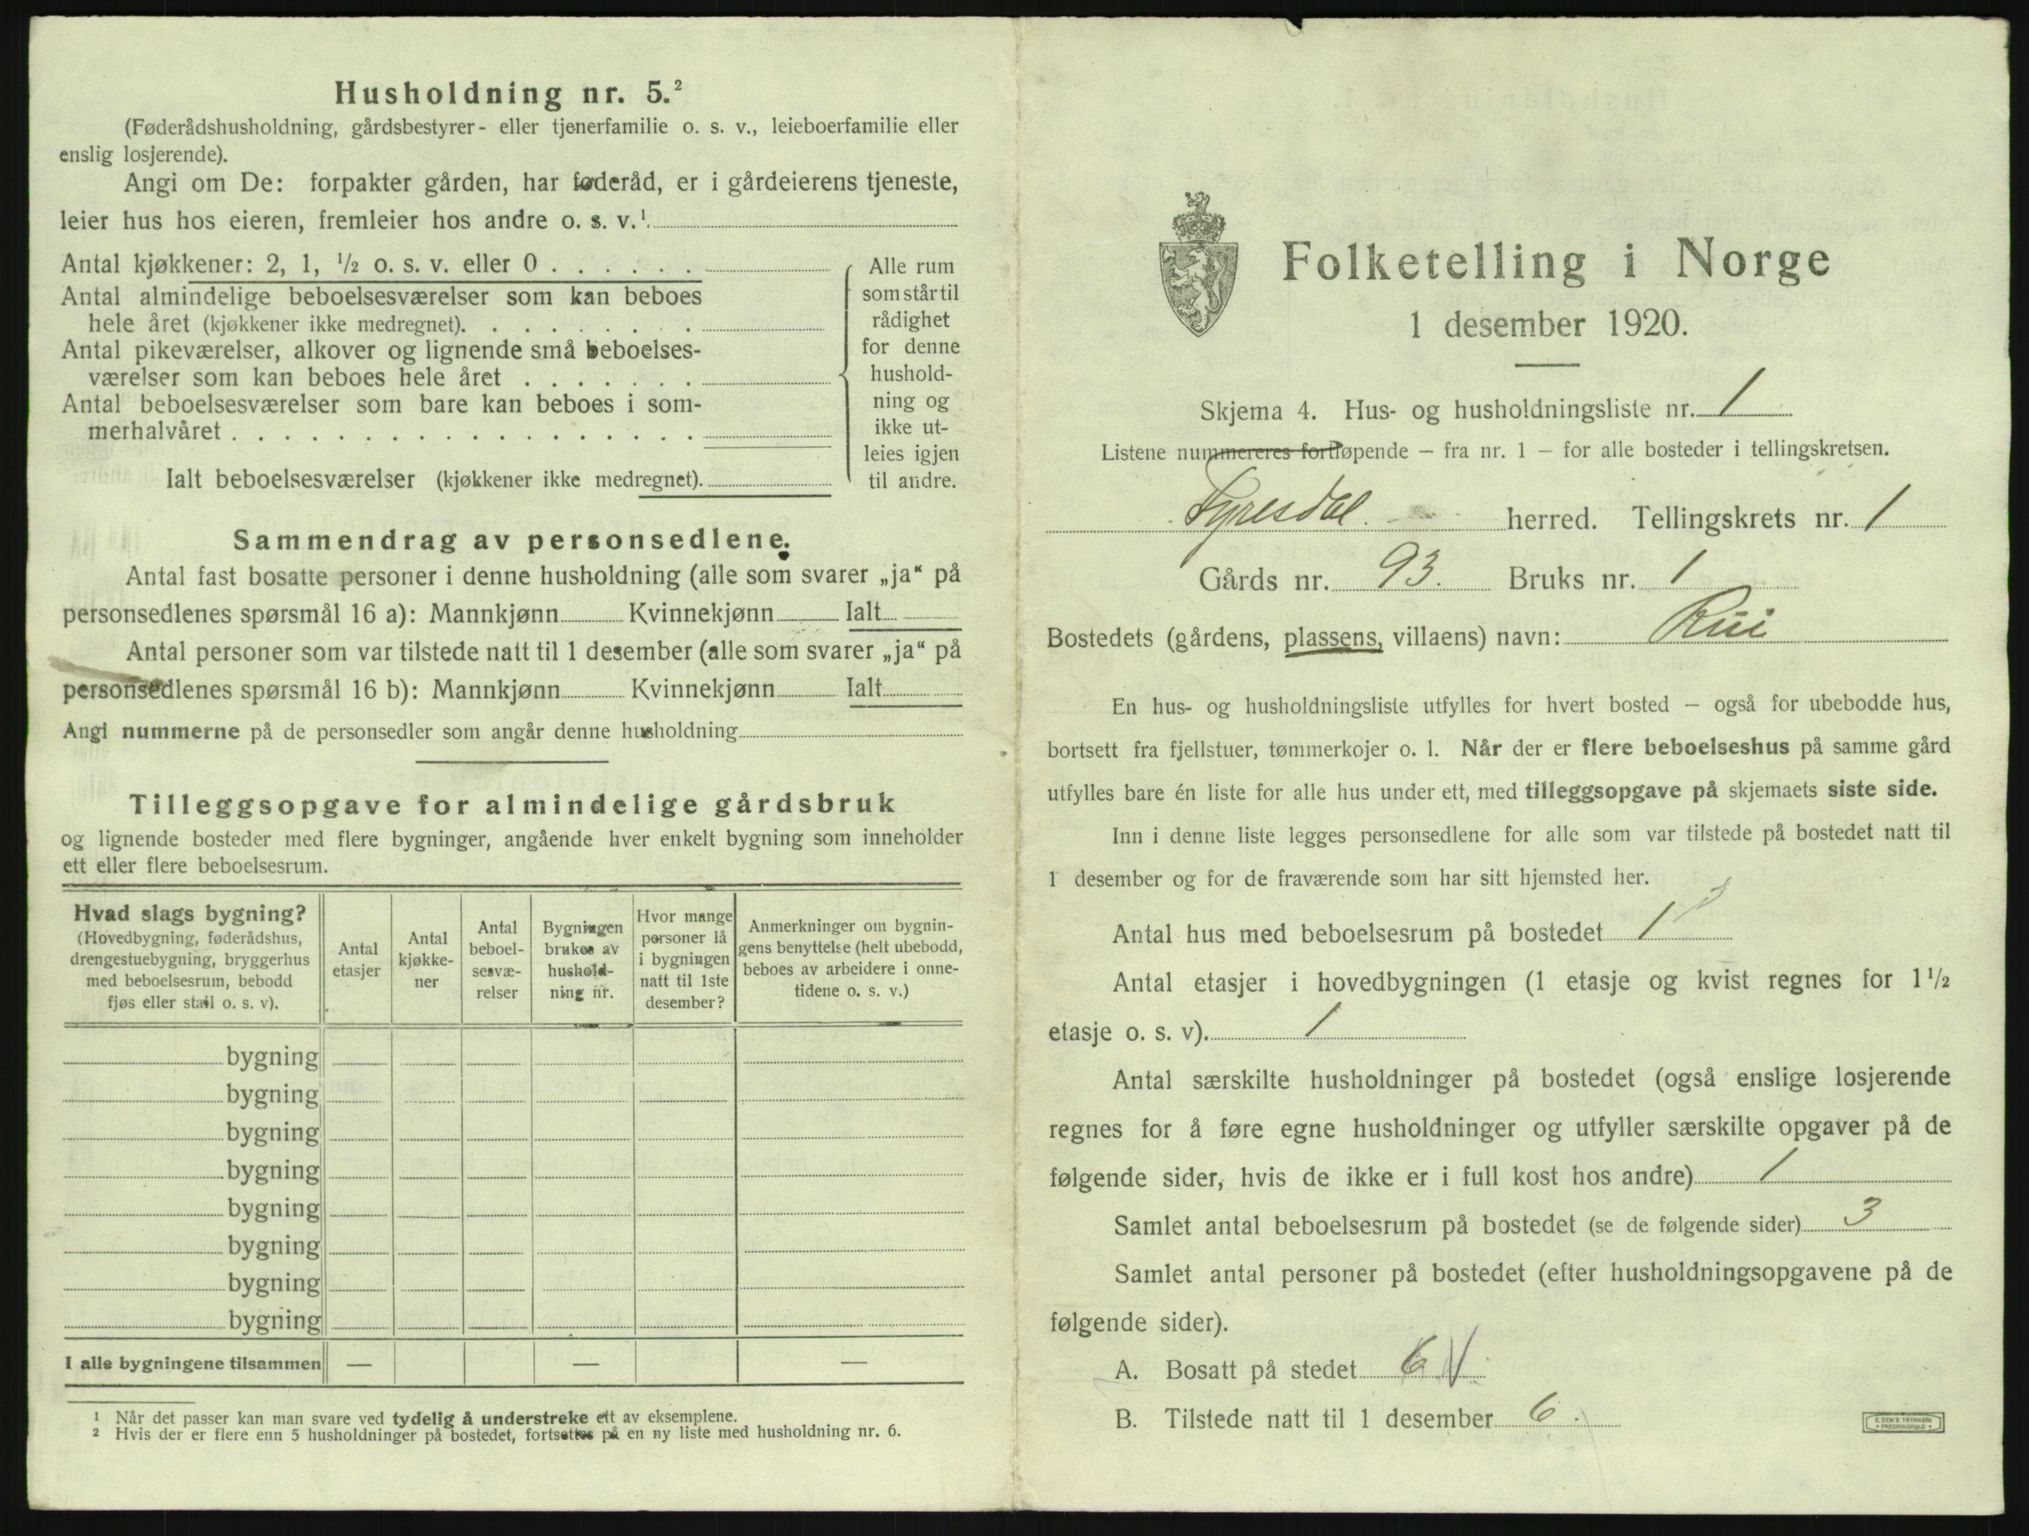 Husholdning nr. 5.²
(Føderådshusholdning, gårdsbestyrer- eller tjenerfamilie o. s. v., leieboerfamilie eller
enslig losjerende).
Angi om De: forpakter gården, har føderåd, er i gårdeierens tjeneste,
leier hus hos eieren, fremleier hos andre o. s. v.¹
Antal kjøkkener: 2, 1, ½ o. s. v. eller 0 . . . . . .
Antal almindelige beboelsesværelser som kan beboes
hele året (kjøkkener ikke medregnet). . . . . . . . .
Antal pikeværelser, alkover og lignende små beboelses-
værelser som kan beboes hele året . . . . . . .
Antal beboelsesværelser som bare kan beboes i som-
merhalvåret . . . . . . . . . . . . . . . . . .
Ialt beboelsesværelser (kjøkkener ikke medregnet).
Alle rum
som står til
rådighet
for denne
hushold-
ning og
ikke ut-
leies igjen
til andre.
Sammendrag av personsedlene.
Antal fast bosatte personer i denne husholdning (alle som svarer „ja“ på
personsedlenes spørsmål 16 a): Mannkjønn Kvinnekjønn Ialt
Antal personer som var tilstede natt til 1 desember (alle som svarer „ja“ på
personsedlenes spørsmål 16 b): Mannkjønn Kvinnekjønn Ialt
Angi nummerne på de personsedler som angår denne husholdning
Tilleggsopgave for almindelige gårdsbruk
og lignende bosteder med flere bygninger, angående hver enkelt bygning som inneholder
ett eller flere beboelsesrum.
Hvad slags bygning?
(Hovedbygning, føderådshus,
drengestuebygning, bryggerhus
med beboelsesrum, bebodd
fjøs eller stall o. s. v).
Antal
etasjer
Antal
kjøkke-
ner
Antal
beboel-
sesvæ-
relser
Bygningen
brukes av
hushold-
ning nr.
Hvor mange
personer lå
i bygningen
natt til 1ste
desember?
Anmerkninger om bygnin-
gens benyttelse (helt ubebodd,
beboes av arbeidere i onne-
tidene o. s. v.)
bygning
bygning
bygning
bygning
bygning
bygning
bygning
bygning
I alle bygningene tilsammen — — —
¹ Når det passer kan man svare ved tydelig å understreke ett av eksemplene.
² Hvis der er flere enn 5 husholdninger på bostedet, fortsettes på en ny liste med husholdning nr. 6.
Folketelling i Norge
1 desember 1920.
Skjema 4. Hus- og husholdningsliste nr. 1
Listene nummereres fortløpende – fra nr. 1 – for alle bosteder i tellingskretsen.
Fyresdal. herred. Tellingskrets nr. 1
Gårds nr. 93. Bruks nr. 1
Bostedets (gårdens, plassens, villaens) navn: Rui
En hus- og husholdningsliste utfylles for hvert bosted – også for ubebodde hus,
bortsett fra fjellstuer, tømmerkojer o. l. Når der er flere beboelseshus på samme gård
utfylles bare én liste for alle hus under ett, med tilleggsopgave på skjemaets siste side.
Inn i denne liste legges personsedlene for alle som var tilstede på bostedet natt til
1 desember og for de fraværende som har sitt hjemsted her.
Antal hus med beboelsesrum på bostedet 1
Antal etasjer i hovedbygningen (1 etasje og kvist regnes for 1½
etasje o. s. v). 1
Antal særskilte husholdninger på bostedet (også enslige losjerende
regnes for å føre egne husholdninger og utfyller særskilte opgaver på de
følgende sider, hvis de ikke er i full kost hos andre) 1
Samlet antal beboelsesrum på bostedet (se de følgende sider) 3
Samlet antal personer på bostedet (efter husholdningsopgavene på de
følgende sider).
A. Bosatt på stedet 6
B. Tilstede natt til 1 desember 6.
E. SEM'S TRYKKERI
FREDRIKSHALD